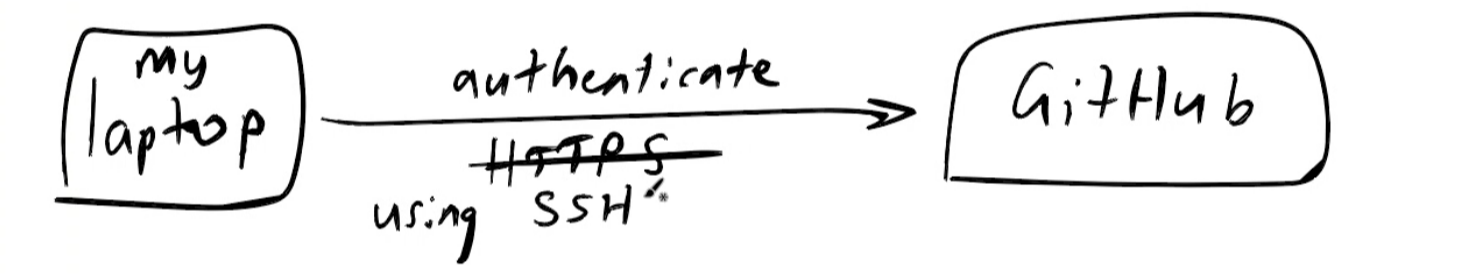 my
laptop
authenticate
HTTPS
using SSH
GitHub